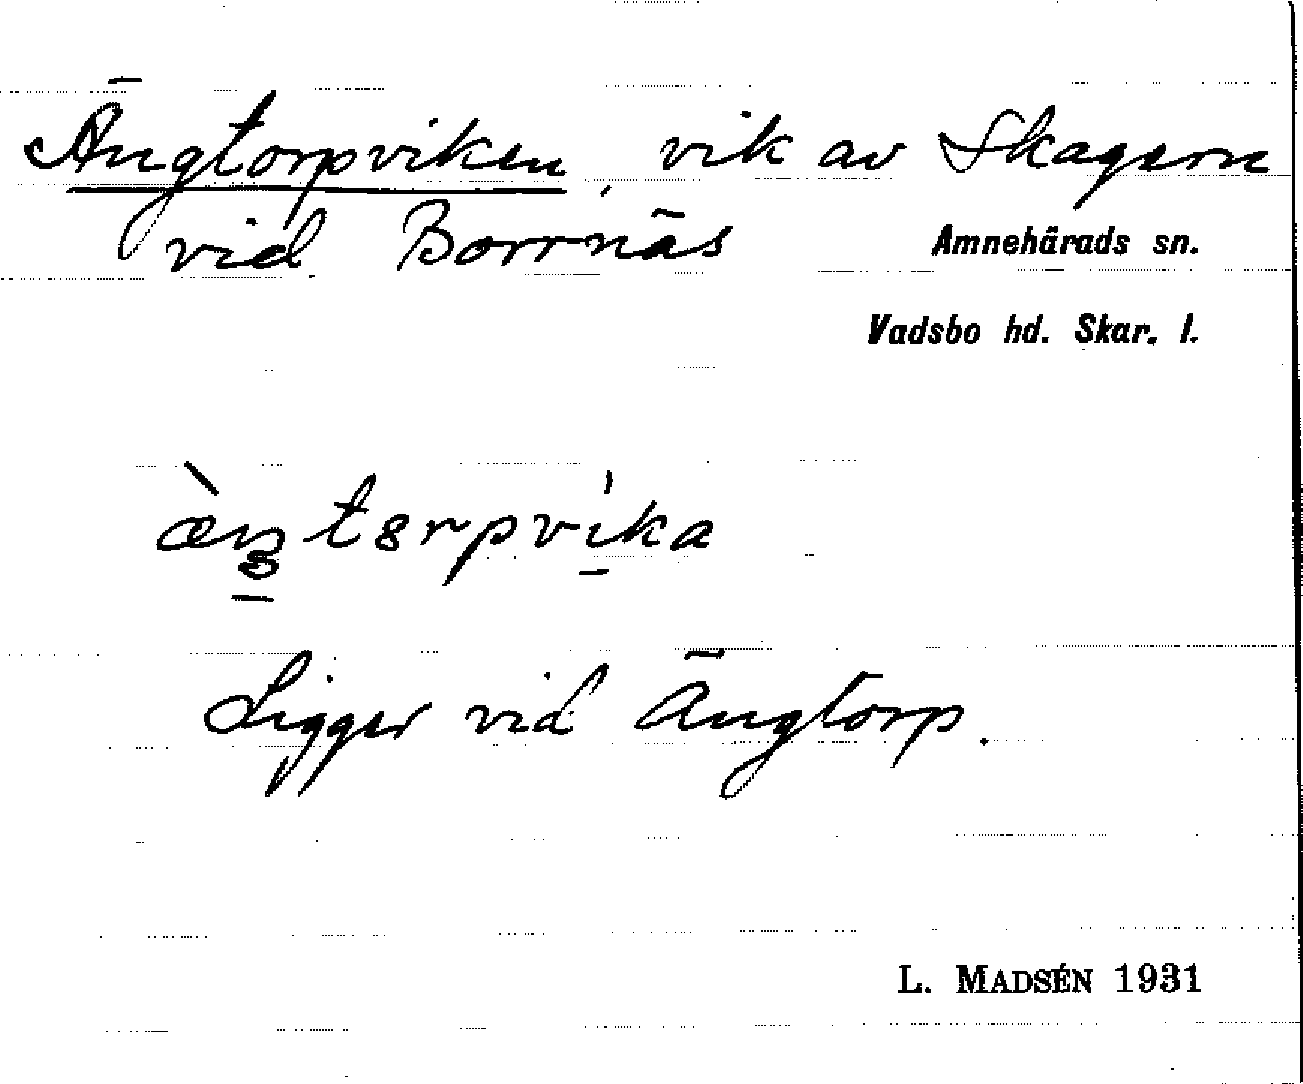 Ängtorpviken, vik av Skagern
vid Borrnäs
Amnehärads sn.
Vadsbo hd. Skar. l.
Ligger vid Ängtorp.
L. MADSÉN 1931